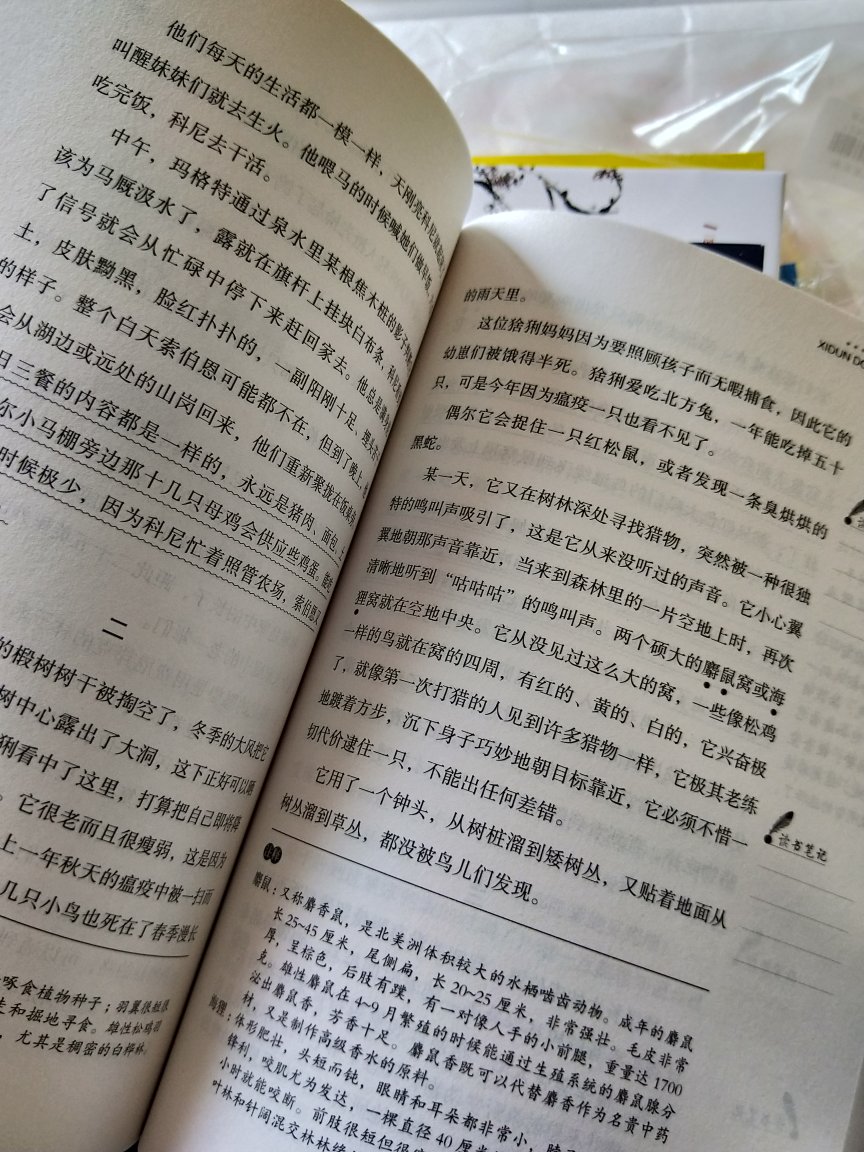 他们每天的生活都一模一样，天刚亮科尼
叫醒妹妹们就去生火。他喂马的时候喊她们
吃完饭，科尼去干活。
中午，玛格特通过泉水里某根焦木桩的影子
该为马厩汲水了，露就在旗杆上挂块白布条，
了信号就会从忙碌中停下来赶回家去。他总是
土，皮肤黝黑，脸红扑扑的，一副阳刚十足、
的样子。整个白天索伯恩可能都不在，但到了晚上，
会从湖边或远处的山岗回来，他们重新聚拢在
日三餐的内容都是一样的，永远是猪肉、面包、
尔小马棚旁边那十几只母鸡会供应些鸡蛋。
时候极少，因为科尼忙着照管农场，索伯恩又
二
的椴树树干被掏空了，冬季的大风把它
树中心露出了大洞，这下正好可以
猁看中了这里，打算把自己即将降
。它很老而且很瘦弱，这是因为
上一年秋天的瘟疫中被一扫而
几只小鸟也死在了春季漫长
啄食植物种子；羽翼很短
和掘地寻食。雄性松鸡
，尤其是稠密的白桦林。
XIDUN
的雨天里。
这位猞猁妈妈因为要照顾孩子而无暇捕食，因此它的
幼崽们被饿得半死。猞猁爱吃北方兔，一年能吃掉五十
只，可是今年因为瘟疫一只也看不见了。
偶尔它会捉住一只红松鼠，或者发现一条臭烘烘的
黑蛇。
某一天，它又在树林深处寻找猎物，突然被一种很独
特的鸣叫声吸引了，这是它从来没听过的声音。它小心翼
翼地朝那声音靠近，当来到森林里的一片空地上时，再次
清晰地听到“咕咕咕”的鸣叫声。两个硕大的麝鼠窝或海
狸窝就在空地中央。它从没见过这么大的窝，一些像松鸡
一样的鸟就在窝的四周，有红的、黄的、白的，它兴奋极
了，就像第一次打猎的人见到许多猎物一样，它极其老练
地踱着方步，沉下身子巧妙地朝目标靠近，它必须不惜一
切代价逮住一只，不能出任何差错。
它用了一个钟头，从树桩溜到矮树丛，又贴着地面从
树丛溜到草丛，都没被鸟儿们发现。
读书笔记
麝鼠：又称麝香鼠，是北美洲体积较大的水栖啮齿动物。成年的麝鼠
长25~45厘米，尾侧扁，长20~25厘米，非常强壮。毛皮非常
厚，呈棕色，后肢有蹼，有一对像人手的小前腿，重量达1700
克。雄性麝鼠在4~9月繁殖的时候能通过生殖系统的麝鼠腺分
泌出麝鼠香，芳香十足。麝鼠香既可以代替麝香作为名贵中药
材，又是制作高级香水的原料。
海狸：体形肥壮，头短而钝，眼睛和耳朵都非常小，
锋利，咬肌尤为发达，一棵直径40厘米
小时就能咬断。前肢很短但很
叶林和针阔混交林林缘